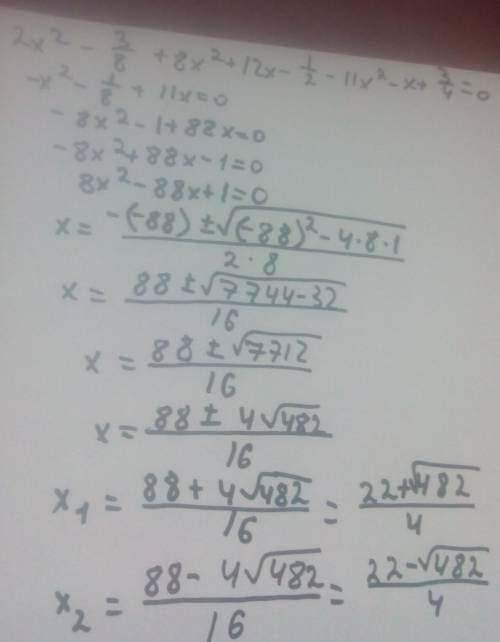 2x² - 3/8 + 8x² + 12x - 1/2 - 11x² - x + 3/4 = 0
-x² - 1/8 + 11x = 0
-8x² - 1 + 88x = 0
-8x² + 88x - 1 = 0
8x² - 88x + 1 = 0
x = (-(-88) ± √((-88)² - 4·8·1)) / (2·8)
x = (88 ± √(7744-32)) / 16
x = (88 ± √7712) / 16
x = (88 ± 4√482) / 16
x₁ = (88 + 4√482) / 16 = (22 + √482) / 4
x₂ = (88 - 4√482) / 16 = (22 - √482) / 4